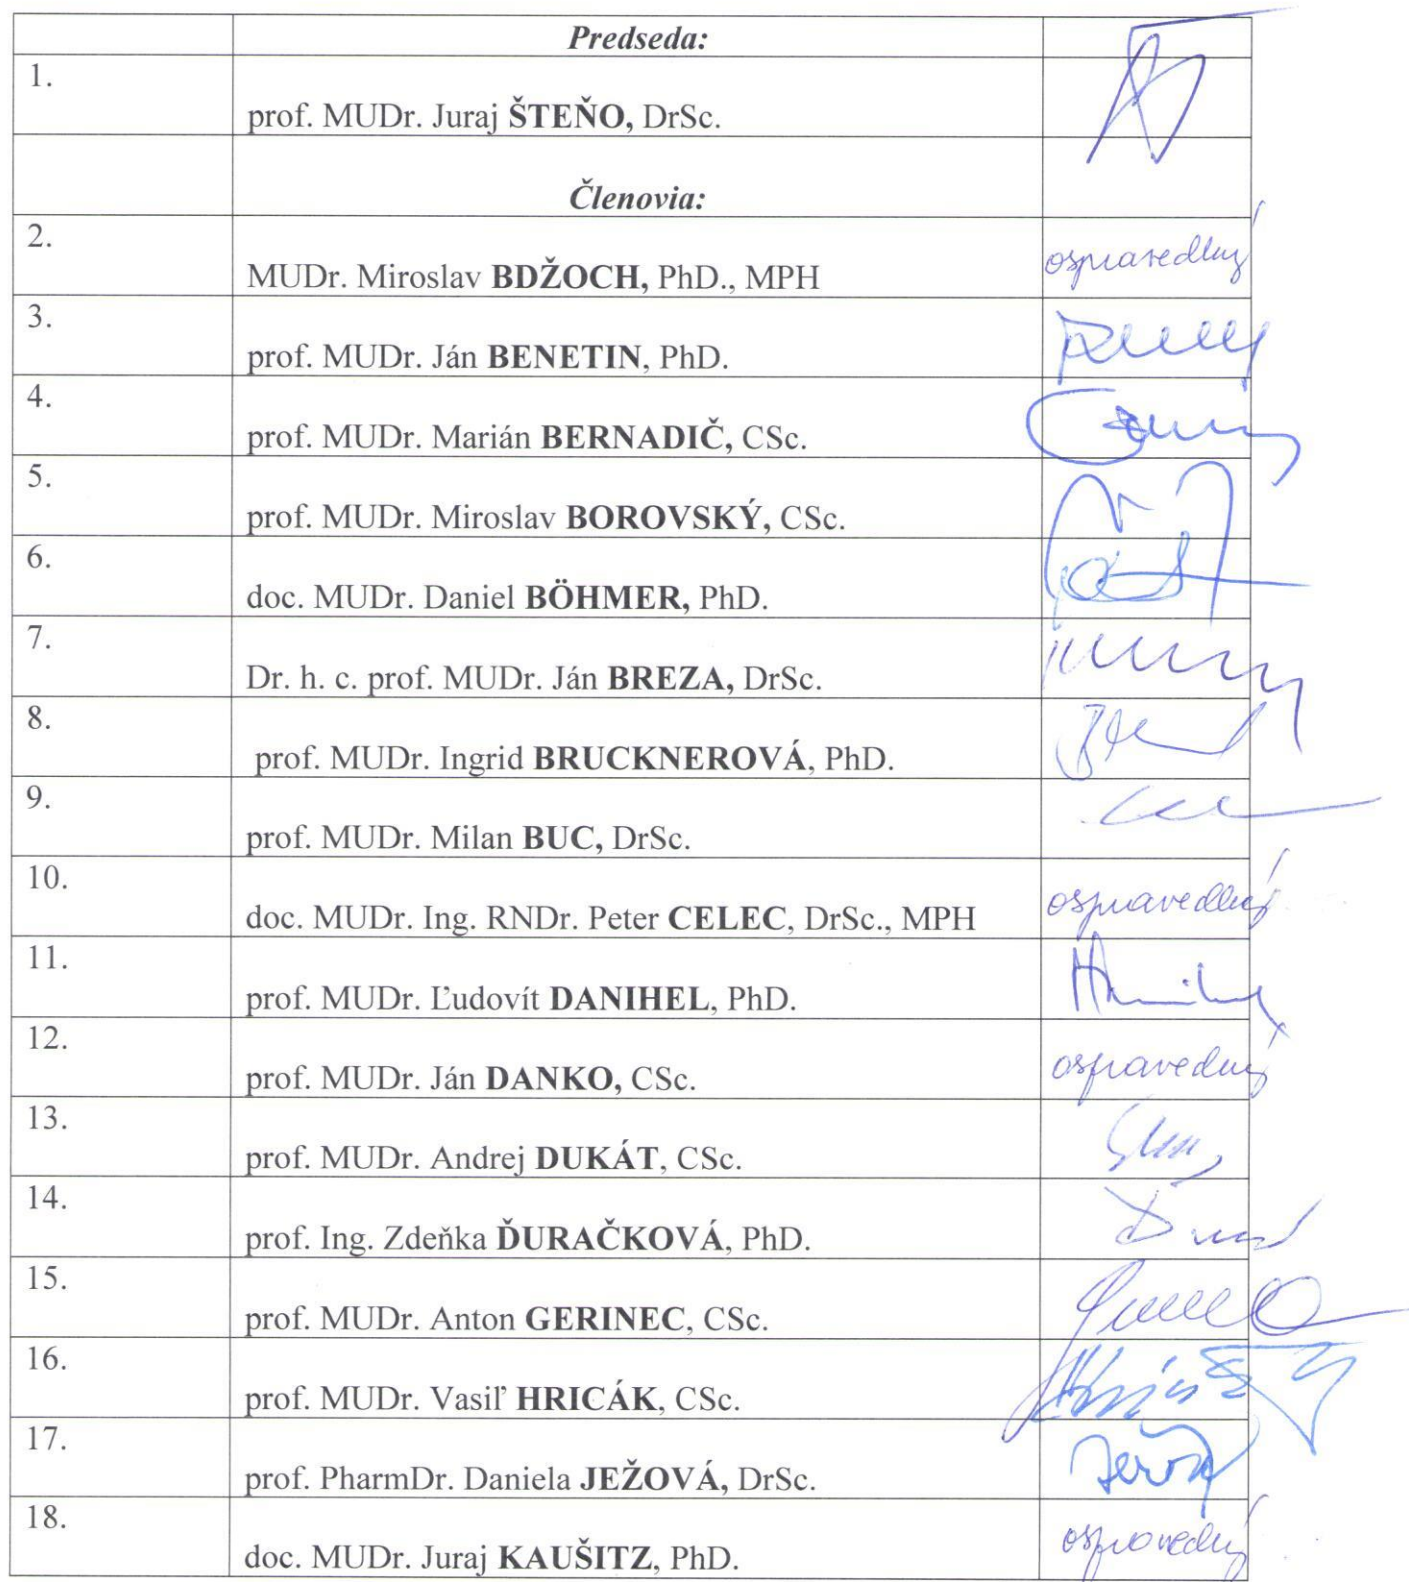 Predseda:
1.
prof. MUDr. Juraj ŠTEŇO, DrSc.
Členovia:
2.
MUDr. Miroslav BDŽOCH, PhD., MPH
ospravedlný
3.
prof. MUDr. Ján BENETIN, PhD.
4.
prof. MUDr. Marián BERNADIČ, CSc.
5.
prof. MUDr. Miroslav BOROVSKÝ, CSc.
6.
doc. MUDr. Daniel BÖHMER, PhD.
7.
Dr. h. c. prof. MUDr. Ján BREZA, DrSc.
8.
prof. MUDr. Ingrid BRUCKNEROVÁ, PhD.
9.
prof. MUDr. Milan BUC, DrSc.
10.
doc. MUDr. Ing. RNDr. Peter CELEC, DrSc., MPH
ospravedlný
11.
prof. MUDr. Ľudovít DANIHEL, PhD.
12.
prof. MUDr. Ján DANKO, CSc.
ospravedlný
13.
prof. MUDr. Andrej DUKÁT, CSc.
14.
prof. Ing. Zdeňka ĎURAČKOVÁ, PhD.
15.
prof. MUDr. Anton GERINEC, CSc.
16.
prof. MUDr. Vasiľ HRICÁK, CSc.
17.
prof. PharmDr. Daniela JEŽOVÁ, DrSc.
18.
doc. MUDr. Juraj KAUŠITZ, PhD.
ospravedlný